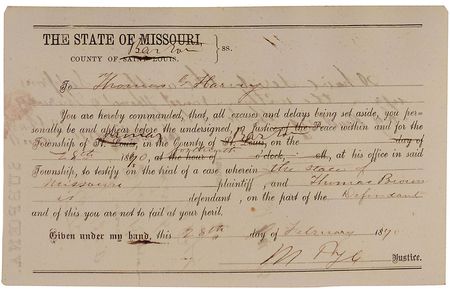 THE STATE OF MISSOURI,
Barton
COUNTY OF SAINT LOUIS. } ss.
To Thomas E Harvey
You are hereby commanded, that, all excuses and delays being set aside, you per-
sonally be and appear before the undersigned, a Justice of the Peace within and for the
Lamar Barton
Township of St. Louis, in the County of St. Louis, on the day of
28th 1870, at the hour of o'clock, M., at his office in said
Township, to testify on the trial of a case wherein the State of
Missouri plaintiff, and Thomas Brown
is defendant, on the part of the Defendant
and of this you are not to fail at your peril.
Given under my hand, this 28th day of February 1870
Justice.
SUBPENA